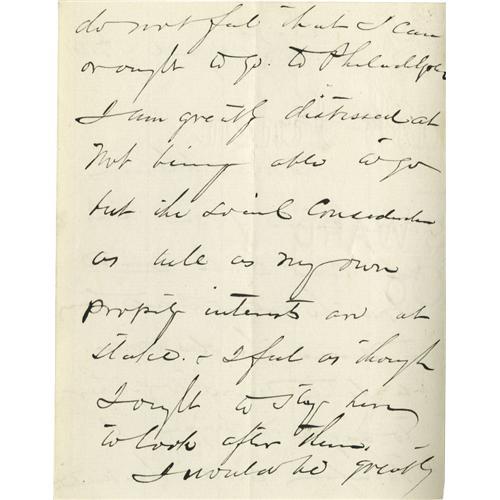 do not feel that I can
or ought to go to Philadelphia
I am greatly distressed at
not being able to go
but the social consideration
as well as my own
property interests are at
stake. - I feel as though
I ought to stay here
to look after them.
I would be greatly